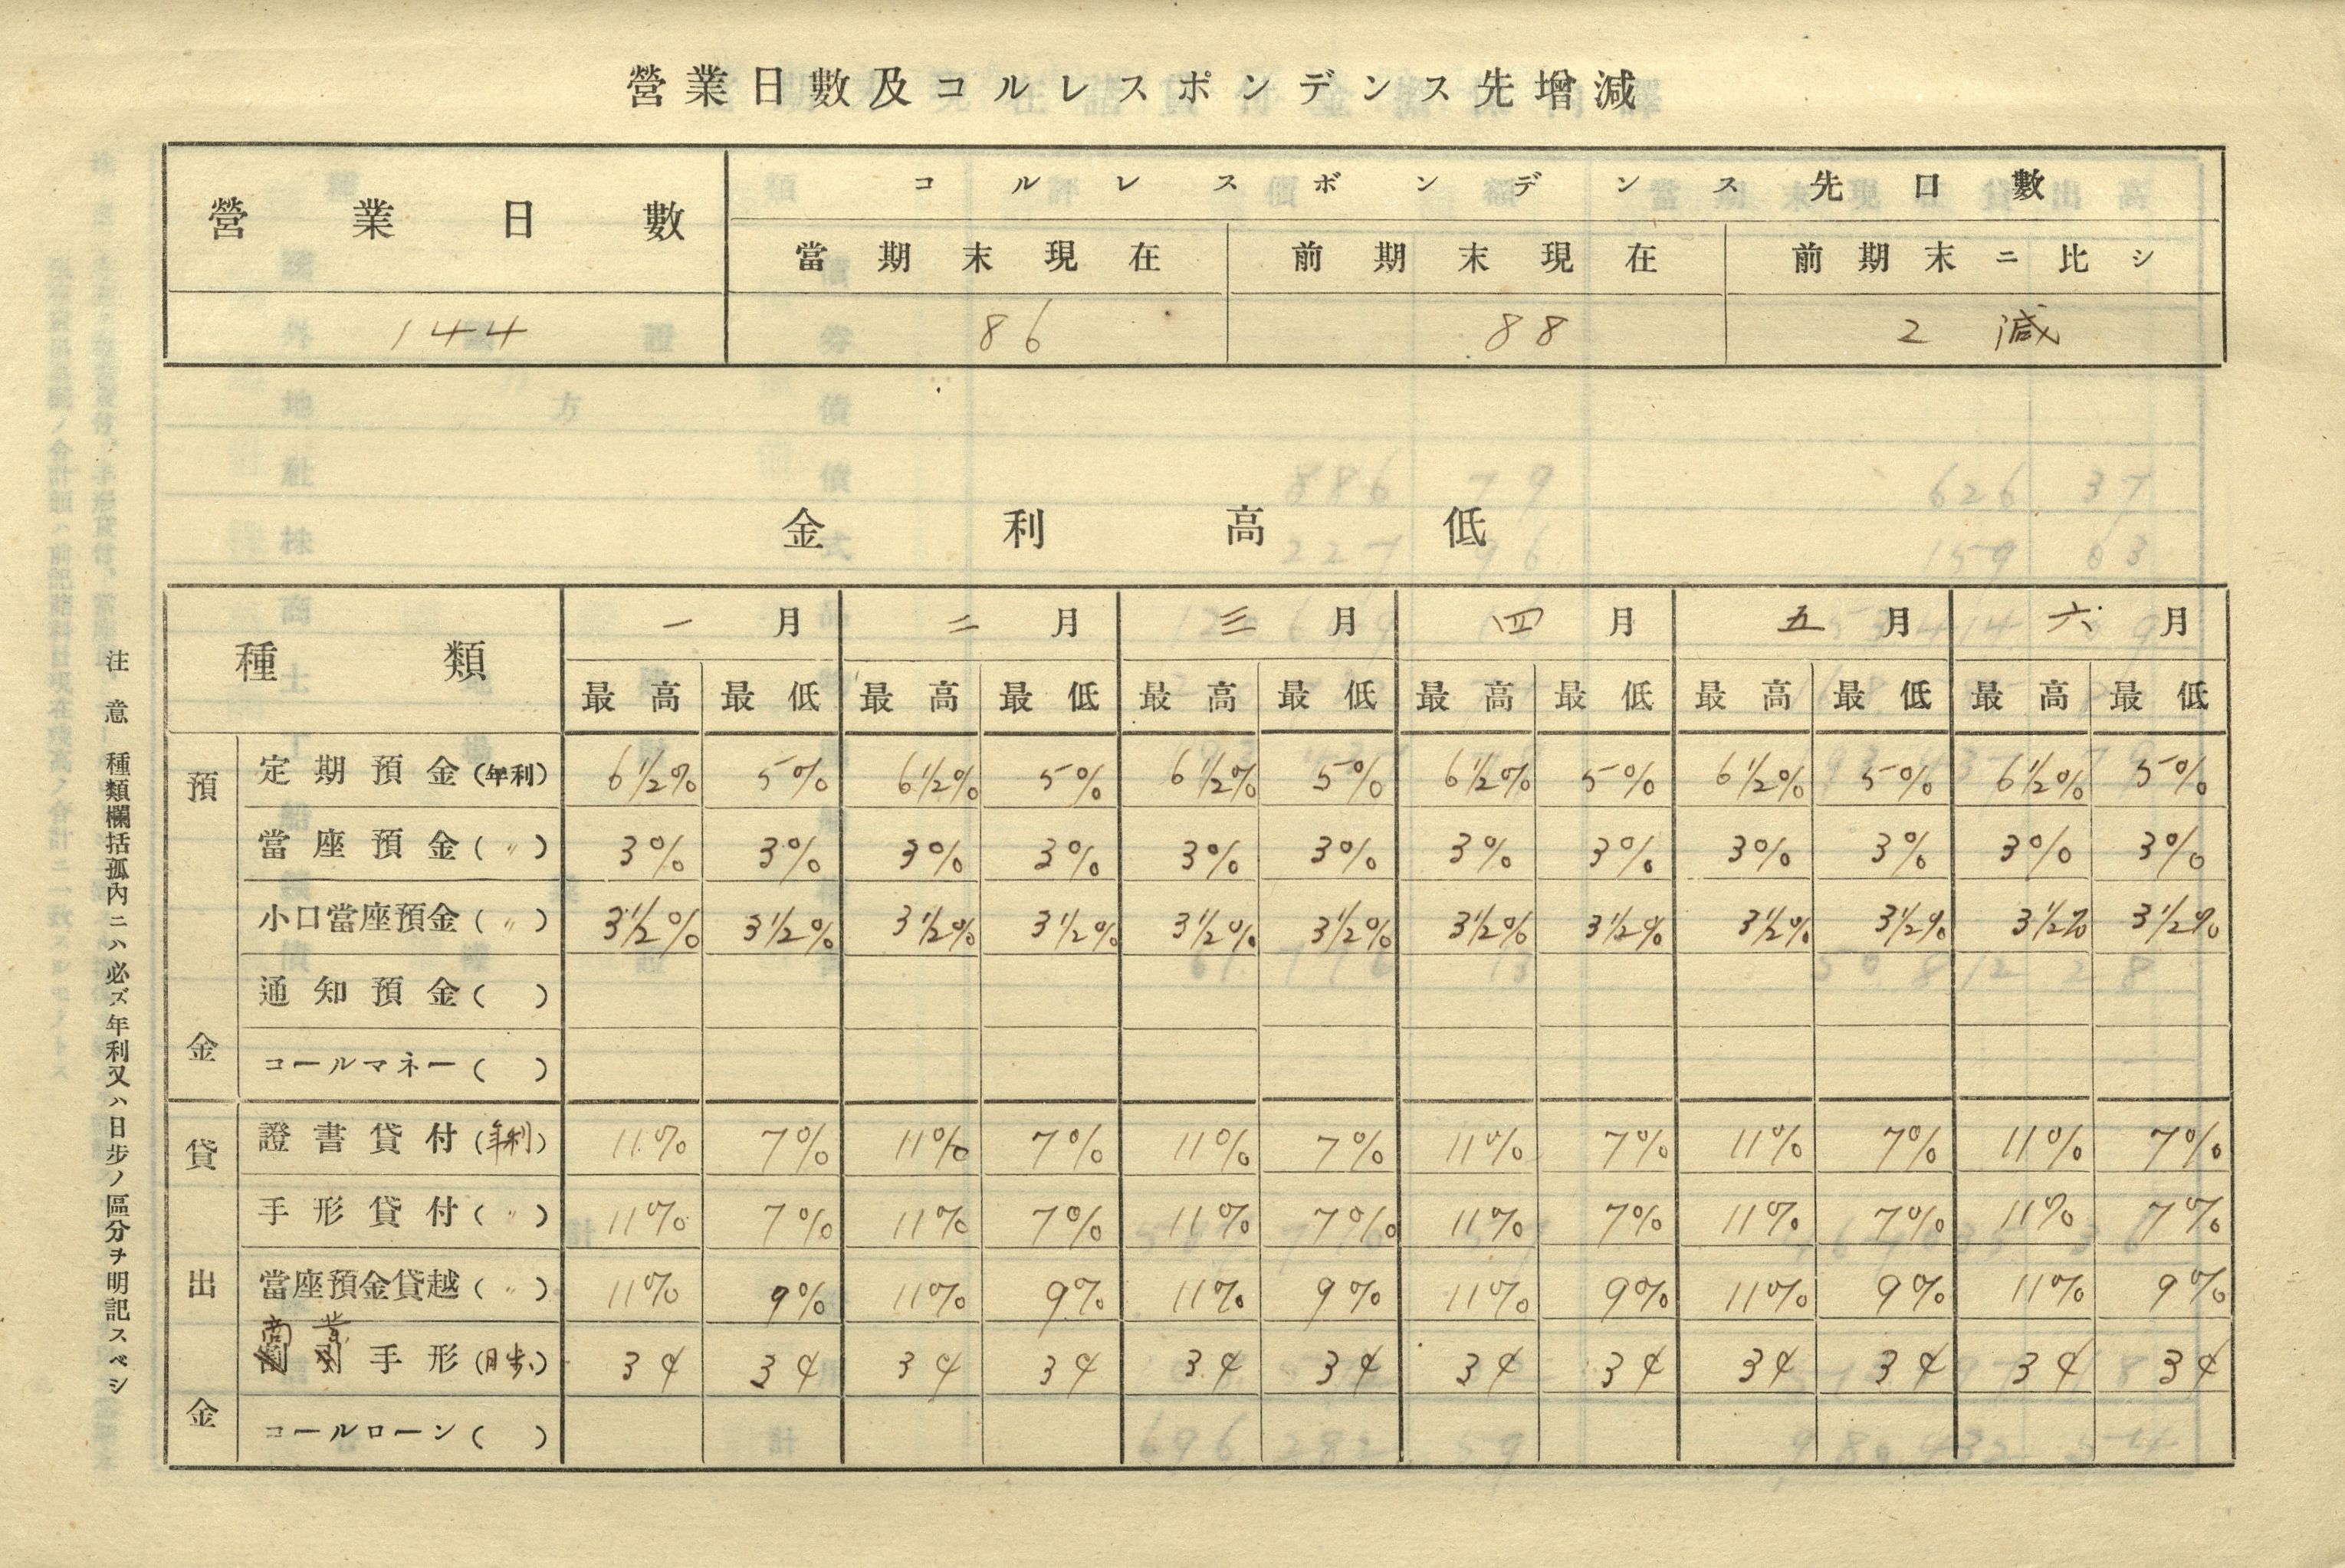 營業日數及コルレスポンデンス先增減
營業日數 コルレスポンデンス先口數
當期末現在 前期末現在 前期末ニ比シ
144 86 88 2 減
金利高低
種類 一月 二月 三月 四月 五月 六月
最高 最低 最高 最低 最高 最低 最高 最低 最高 最低 最高 最低
預金
定期預金(年利) 6½% 5% 6½% 5% 6½% 5% 6½% 5% 6½% 5% 6½% 5%
當座預金(〃) 3% 3% 3% 3% 3% 3% 3% 3% 3% 3% 3% 3%
小口當座預金(〃) 3½% 3½% 3½% 3½% 3½% 3½% 3½% 3½% 3½% 3½% 3½% 3½%
通知預金( )
コールマネー( )
貸出金
證書貸付(年利) 11% 7% 11% 7% 11% 7% 11% 7% 11% 7% 11% 7%
手形貸付(〃) 11% 7% 11% 7% 11% 7% 11% 7% 11% 7% 11% 7%
當座預金貸越(〃) 11% 9% 11% 9% 11% 9% 11% 9% 11% 9% 11% 9%
商業手形(日歩) 3¢ 3¢ 3¢ 3¢ 3¢ 3¢ 3¢ 3¢ 3¢ 3¢ 3¢ 3¢
コールローン( )
注意 種類欄括孤內ニハ必ズ年利又ハ日步ノ區分ヲ明記スベシ